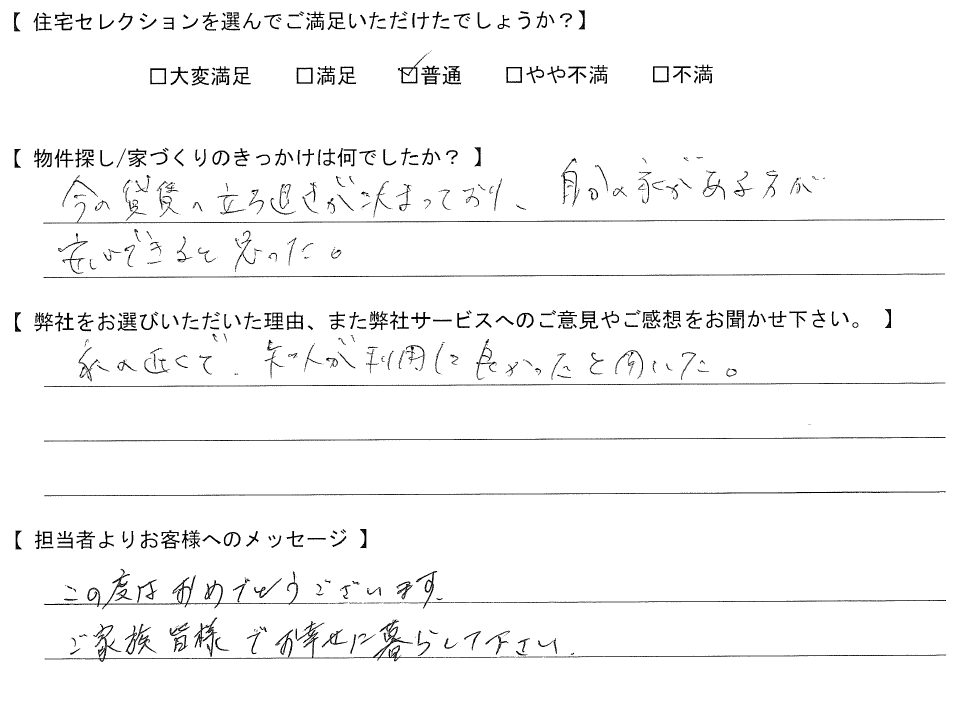 【 住宅セレクションを選んでご満足いただけたでしょうか？】
□大変満足 □満足 ☑普通 □やや不満 □不満
【 物件探し/家づくりのきっかけは何でしたか？ 】
今の賃貸の立ち退きが決まっており、自分の家がある方が
安心できると思った。
【 弊社をお選びいただいた理由、また弊社サービスへのご意見やご感想をお聞かせ下さい。 】
家の近くで、知人が利用して良かったと聞いた。
【 担当者よりお客様へのメッセージ 】
この度はおめでとうございます。
ご家族皆様でお幸せに暮らして下さい。